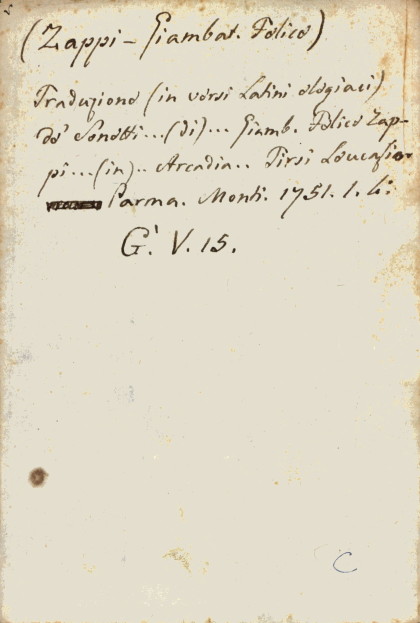 (Zappi - Giambat. Felice)
Traduzione (in versi Latini elegiaci)
de' Sonetti...(di)... Giamb. Felice Zap-
pi...(in).. Arcadia.. Tirsi Leucasio.
Parma. Monti. 1751. 1. 4:
G. V. 15.
C